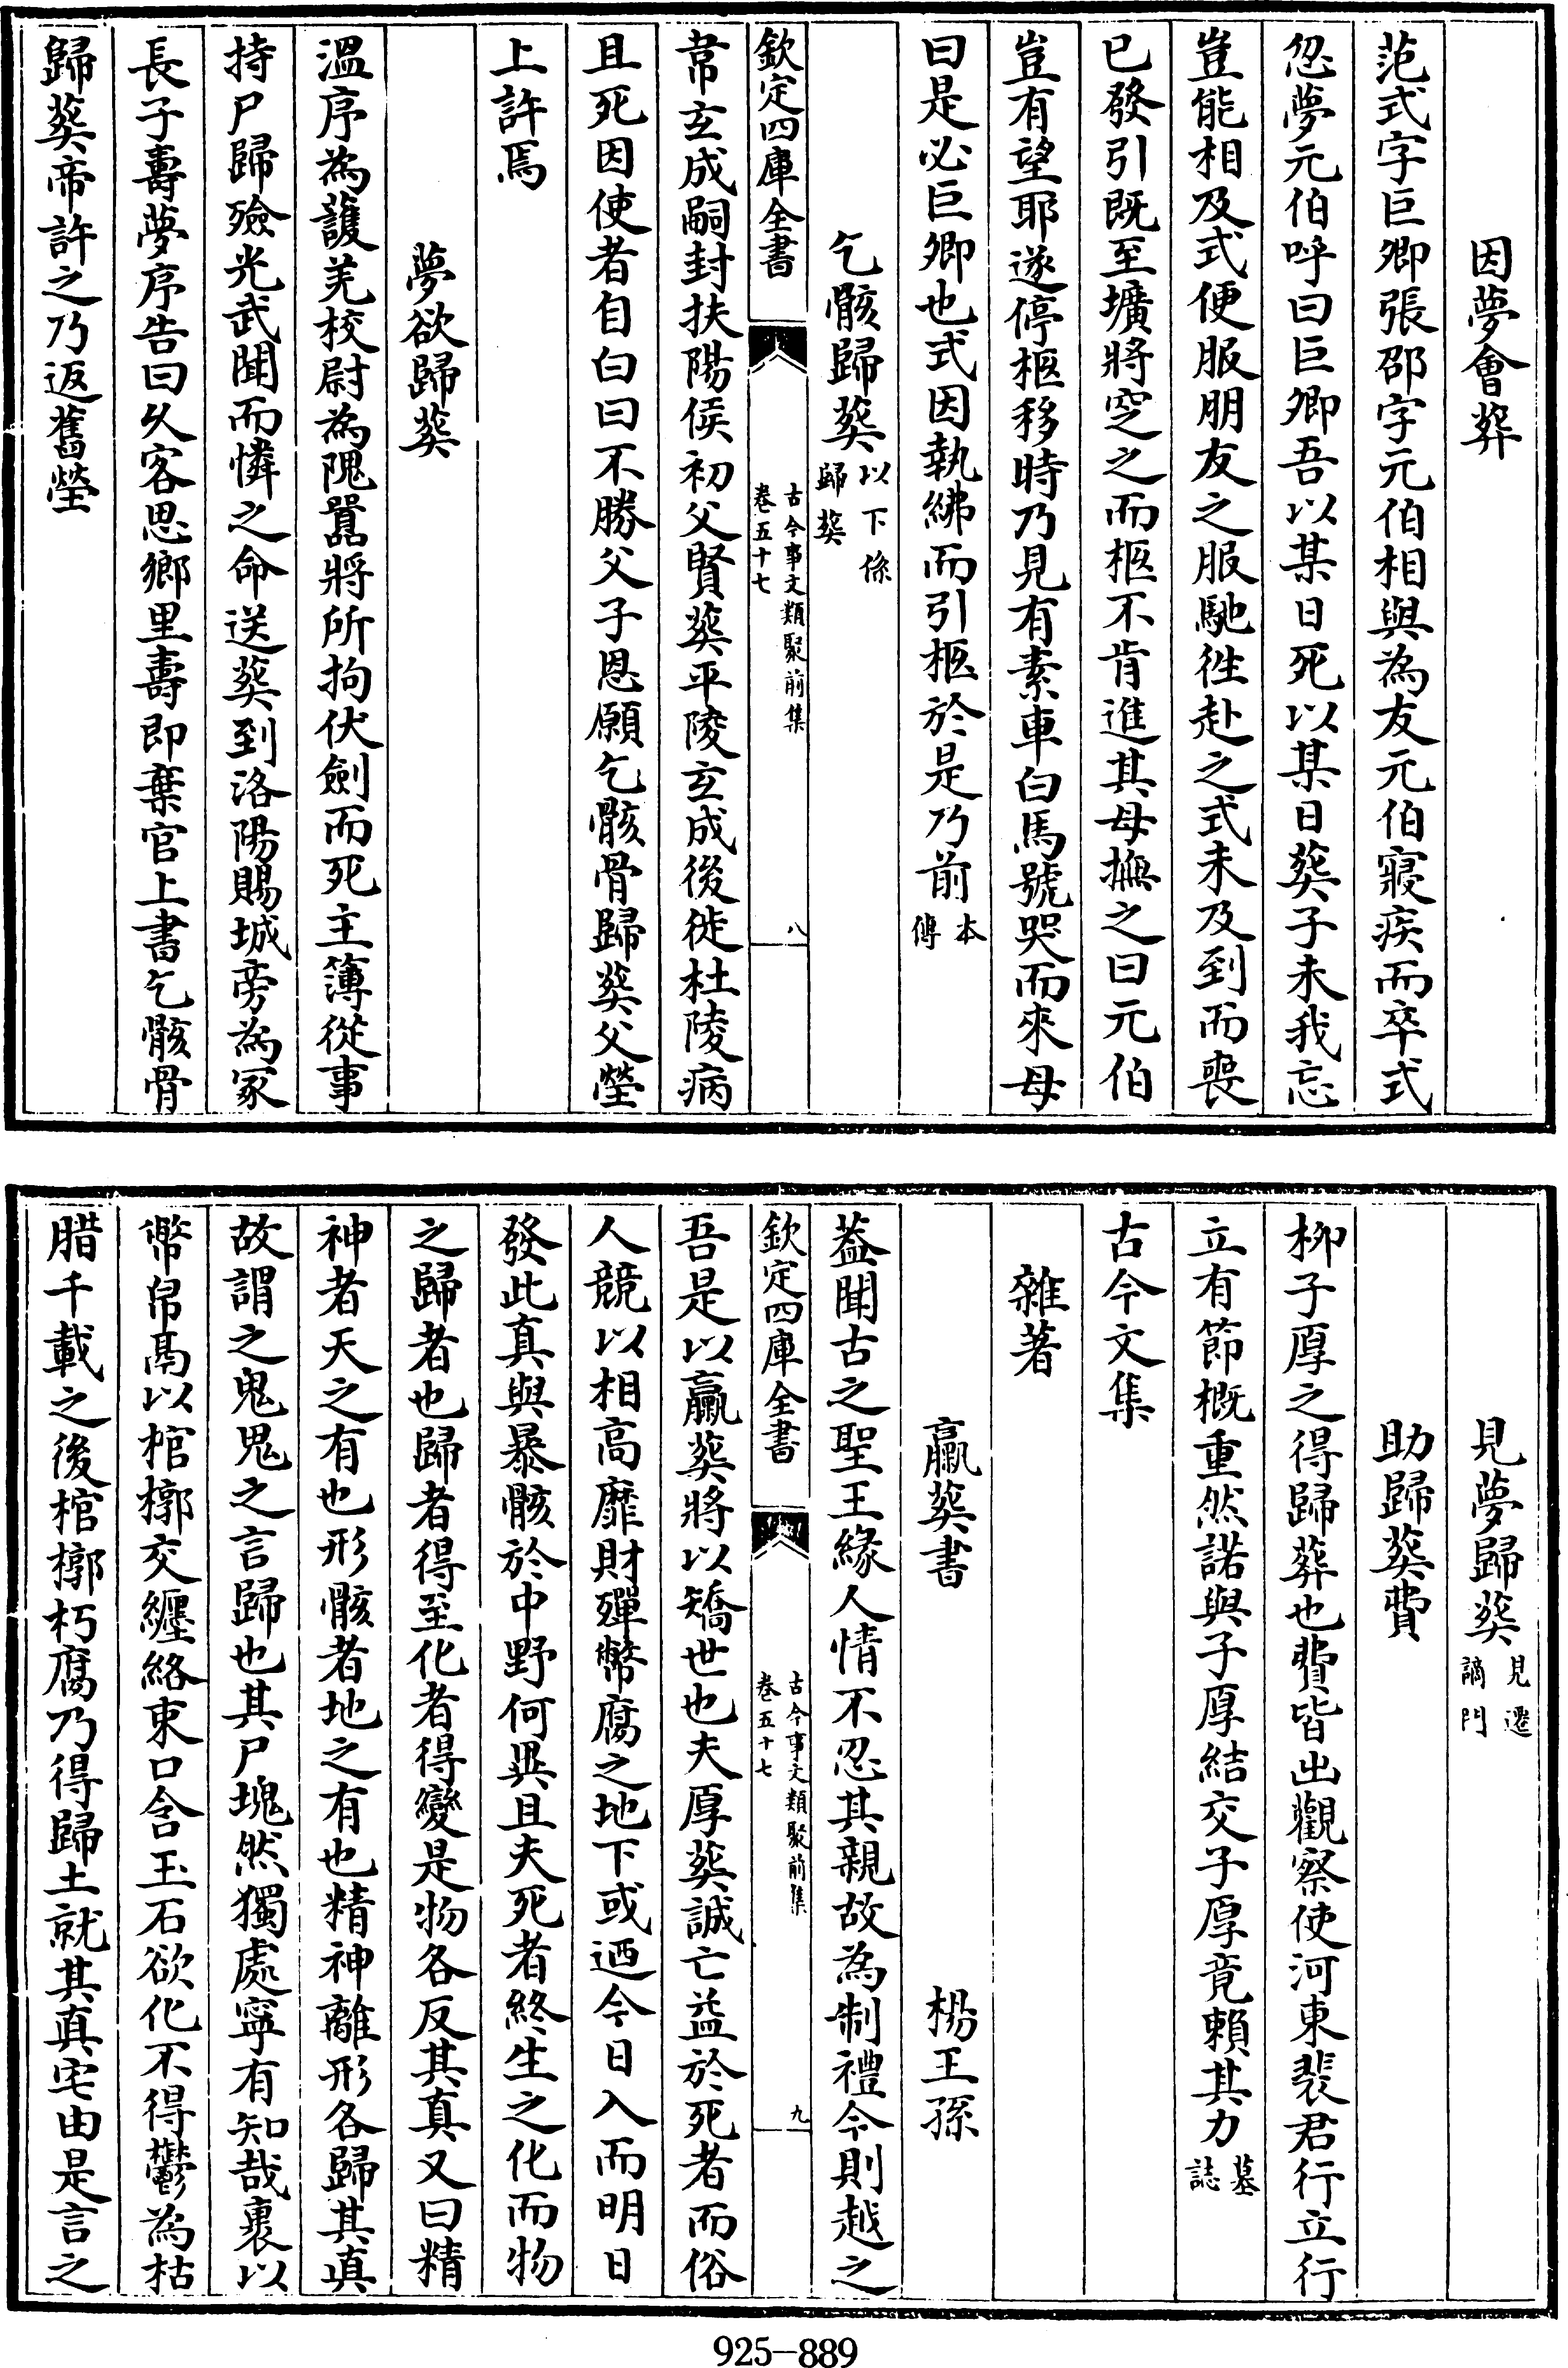 因夢會葬
范式字巨卿張邵字元伯相與為友元伯寢疾而卒式
忽夢元伯呼曰巨卿吾以某日死以某日葬子未我忘
豈能相及式便服朋友之服馳徃赴之式未及到而喪
已發引既至壙將窆之而柩不肯進其母撫之曰元伯
豈有望耶遂停柩移時乃見有素車白馬號哭而來母
曰是必巨卿也式因執紼而引柩於是乃前本傳
乞骸歸葬以下係歸葬
欽定四庫全書 古今事文類聚前集 卷五十七 八
韋玄成嗣封扶陽侯初父賢葬平陵玄成後徙杜陵病
且死因使者自白曰不勝父子恩願乞骸骨歸葬父塋
上許焉
夢欲歸葬
溫序為護羌校尉為隗囂將所拘伏劍而死主簿從事
持尸歸殮光武聞而憐之命送葬到洛陽賜城旁為冢
長子壽夢序告曰乆客思鄉里壽即棄官上書乞骸骨
歸葬帝許之乃返舊塋
見夢歸葬見遷謫門
助歸葬費
柳子厚之得歸葬也費皆出觀察使河東裴君行立行
立有節概重然諾與子厚結交子厚竟賴其力墓誌
古今文集
雜著
羸葬書 楊王孫
葢聞古之聖王緣人情不忍其親故為制禮今則越之
欽定四庫全書 古今事文類聚前集 卷五十七 九
吾是以羸葬將以矯世也夫厚葬誠亡益於死者而俗
人競以相高靡財殫幣腐之地下或迺今日入而明日
發此真與暴骸於中野何異且夫死者終生之化而物
之歸者也歸者得至化者得變是物各反其真又曰精
神者天之有也形骸者地之有也精神離形各歸其真
故謂之鬼鬼之言歸也其尸塊然獨處寧有知哉裹以
幣帛鬲以棺槨交纒絡束口含玉石欲化不得鬱為枯
腊千載之後棺槨朽腐乃得歸土就其真宅由是言之
925-889